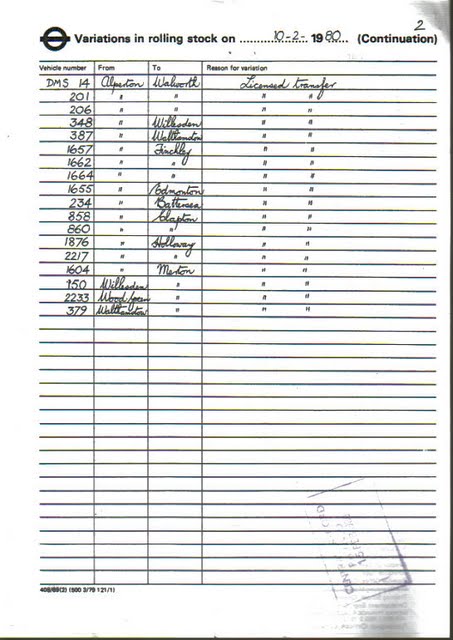 2
Variations in rolling stock on 10-2- 1980 (Continuation)
Vehicle number From To Reason for variation
DMS 14 Alperton Walworth Licensed transfer
201 " " " "
206 " " " "
348 " Willesden " "
387 " Walthamstow " "
1657 " Finchley " "
1662 " " " "
1664 " " " "
1655 " Edmonton " "
234 " Battersea " "
858 " Clapton " "
860 " " " "
1876 " Holloway " "
2217 " " " "
1604 " Merton " "
150 Willesden " " "
2233 Wood Green " " "
379 Walthamstow " " "